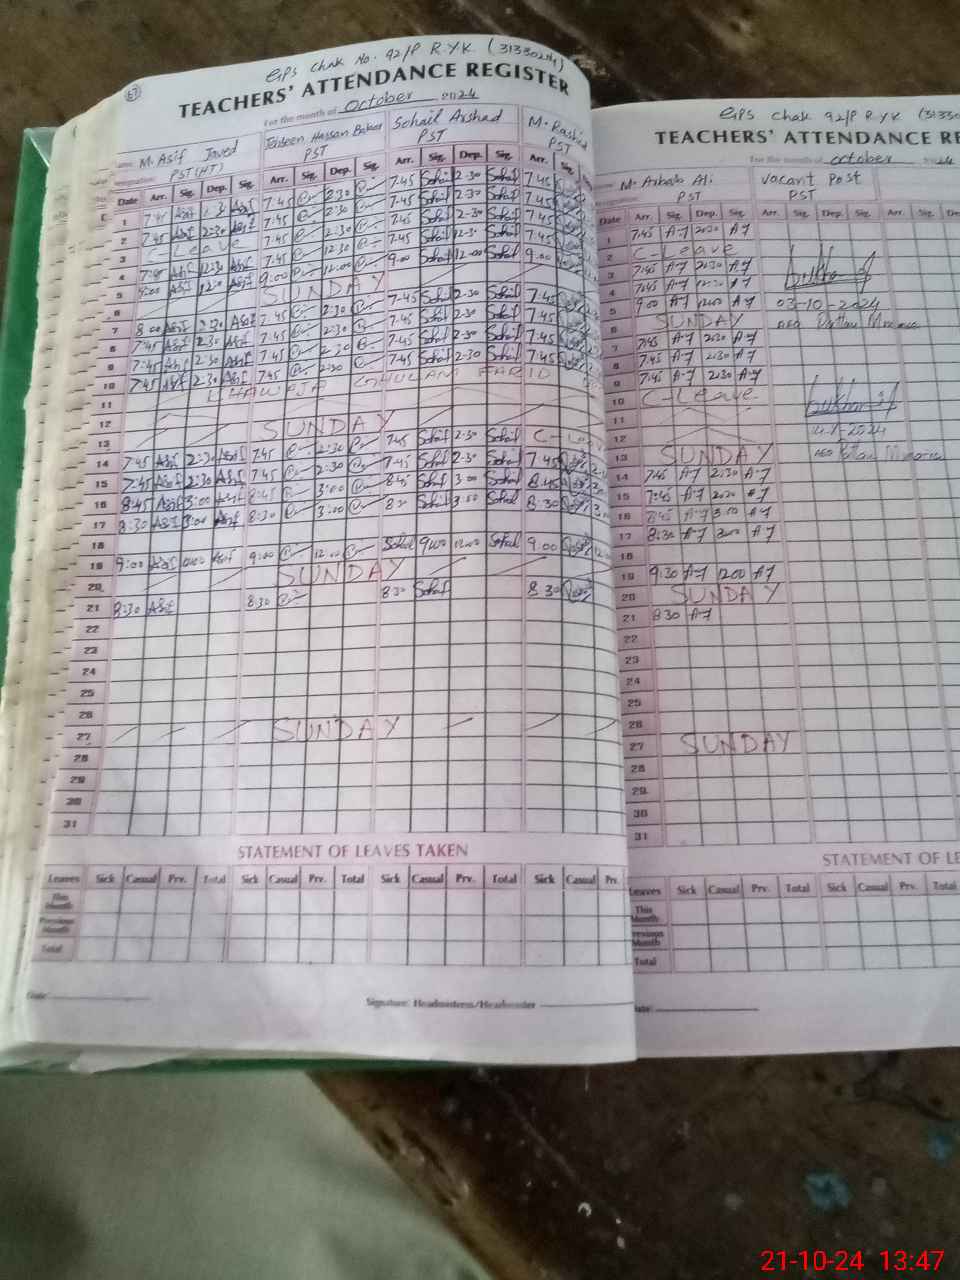 67
GPS Chak No. 92/P R.Y.K (31330214)
TEACHERS' ATTENDANCE REGISTER
For the month of October 2024
M. Asif Javed
PST (HT)
Hassan
PST
Sohail Arshad
PST
M. Rashid
PST
Date Arr. Sig. Dep. Sig. Arr. Sig. Dep. Sig. Arr. Sig. Dep. Sig. Arr. Sig.
1 7:45 Asif 2:30 Asif 7:45 2:30 7:45 Sohail 2:30 Sohail 7:45
2 7:45 Asif 2:30 Asif 7:45 2:30 7:45 Sohail 2:30 Sohail 7:45
3 C-Leave 7:45 2:30 7:45 Sohail 2:30 Sohail 7:45
4 7:45 Asif 12:30 Asif 7:45 12:30 7:45 Sohail 12:30 Sohail 7:45
5 9:00 Asif 12:00 Asif 9:00 12:00 9:00 Sohail 12:00 Sohail 9:00
6 SUNDAY
7 8:00 Asif 2:30 Asif 7:45 2:30 7:45 Sohail 2:30 Sohail 7:45
8 7:45 Asif 2:30 Asif 7:45 2:30 7:45 Sohail 2:30 Sohail 7:45
9 7:45 Asif 2:30 Asif 7:45 2:30 7:45 Sohail 2:30 Sohail 7:45
10 7:45 Asif 2:30 Asif 7:45 2:30 7:45 Sohail 2:30 Sohail 7:45
11 KHAWAJA GHULAM FARID
12
13 SUNDAY
14 7:45 Asif 2:30 Asif 7:45 2:30 7:45 Sohail 2:30 Sohail C-Leave
15 7:45 Asif 2:30 Asif 7:45 2:30 7:45 Sohail 2:30 Sohail 7:45
16 8:45 Asif 3:00 Asif 8:45 3:00 8:45 Sohail 3:00 Sohail 8:45
17 8:30 Asif 3:00 Asif 8:30 3:00 8:30 Sohail 3:00 Sohail 8:30
18
19 9:00 Asif 12:00 Asif 9:00 12:00 Sohail 9:00 12:00 Sohail 9:00
20 SUNDAY
21 8:30 Asif 8:30 8:30 Sohail 8:30
22
23
24
25
26
27 SUNDAY
28
29
30
31
STATEMENT OF LEAVES TAKEN
Leaves Sick Casual Prv. Total Sick Casual Prv. Total Sick Casual Prv. Total Sick Casual Prv.
This Month
Previous Month
Total
Date:
Signature: Headmistress/Headmaster
GPS Chak 92/P R.Y.K (31330
TEACHERS' ATTENDANCE RE
For the month of october 2024
M. Arbab Ali
PST
Vacant Post
PST
Date Arr. Sig. Dep. Sig. Arr. Sig. Dep. Sig. Arr.
1 7:45 A-7 2:30 A-7
2 C-Leave
3 7:45 A-7 2:30 A-7
4 7:45 A-7 12:30 A-7
5 9:00 A-7 12:00 A-7 03-10-2024
6 SUNDAY AEO
7 7:45 A-7 2:30 A-7
8 7:45 A-7 2:30 A-7
9 7:45 A-7 2:30 A-7
10 C-Leave
11
12
13 SUNDAY AEO
14 7:45 A-7 2:30 A-7
15 7:45 A-7 2:30 A-7
16 8:45 A-7 3:00 A-7
17 8:30 A-7 3:00 A-7
18
19 9:30 A-7 12:00 A-7
20 SUNDAY
21 8:30 A-7
22
23
24
25
26
27 SUNDAY
28
29
30
31
STATEMENT OF LE
Leaves Sick Casual Prv. Total Sick Casual Prv. Total
This Month
Previous Month
Total
Date:
21-10-24 13:47